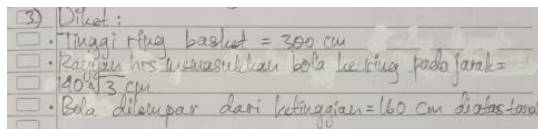 3.) Diket :
· Tinggi ring basket = 300 cm
· hrs memasukkan bola ke ring pada jarak =
140√3 cm
· Bola dilempar dari ketinggian = 160 cm diatas tana